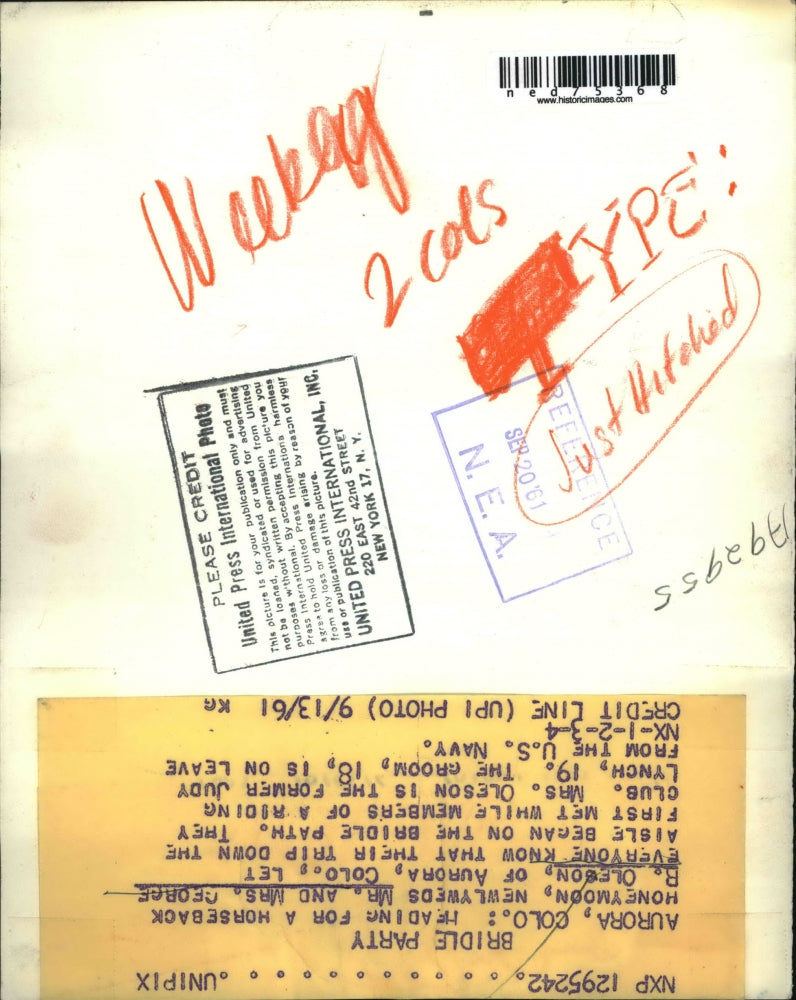 ned75368
www.historicimages.com
Weekly
2 cols
TYPE:
Just Hitched
PLEASE CREDIT
United Press International Photo
This picture is for your publication only and must
not be loaned, syndicated or used for advertising
purposes without written permission from United
Press International. By accepting this picture you
agree to hold United Press International harmless
from any loss or damage arising by reason of your
use or publication of this picture.
UNITED PRESS INTERNATIONAL, INC.
220 EAST 42nd STREET
NEW YORK 17, N. Y.
REFERENCE
SEP 20 '61
N.E.A.
NXP 1295242. . . . . . . . . . . . . .UNIPIX
BRIDLE PARTY
AURORA, COLO.: HEADING FOR A HORSEBACK
HONEYMOON, NEWLYWEDS MR. AND MRS. GEORGE
B. OLESON, OF AURORA, COLO., LET
EVERYONE KNOW THAT THEIR TRIP DOWN THE
AISLE BEGAN ON THE BRIDLE PATH. THEY
FIRST MET WHILE MEMBERS OF A RIDING
CLUB. MRS. OLESON IS THE FORMER JUDY
LYNCH, 19. THE GROOM, 18, IS ON LEAVE
FROM THE U.S. NAVY.
NX-1-2-3-4
CREDIT LINE (UPI PHOTO) 9/13/61 KG